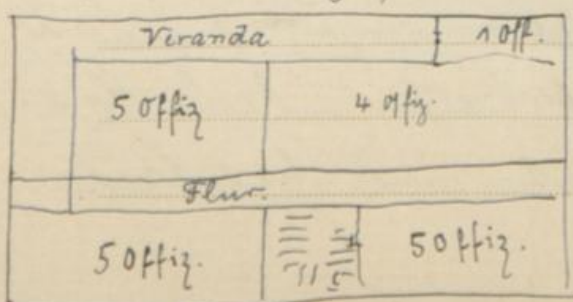 Veranda 1 Off.
5 Offiz 4 Offiz.
Flur.
5 Offiz. 5 Offiz.